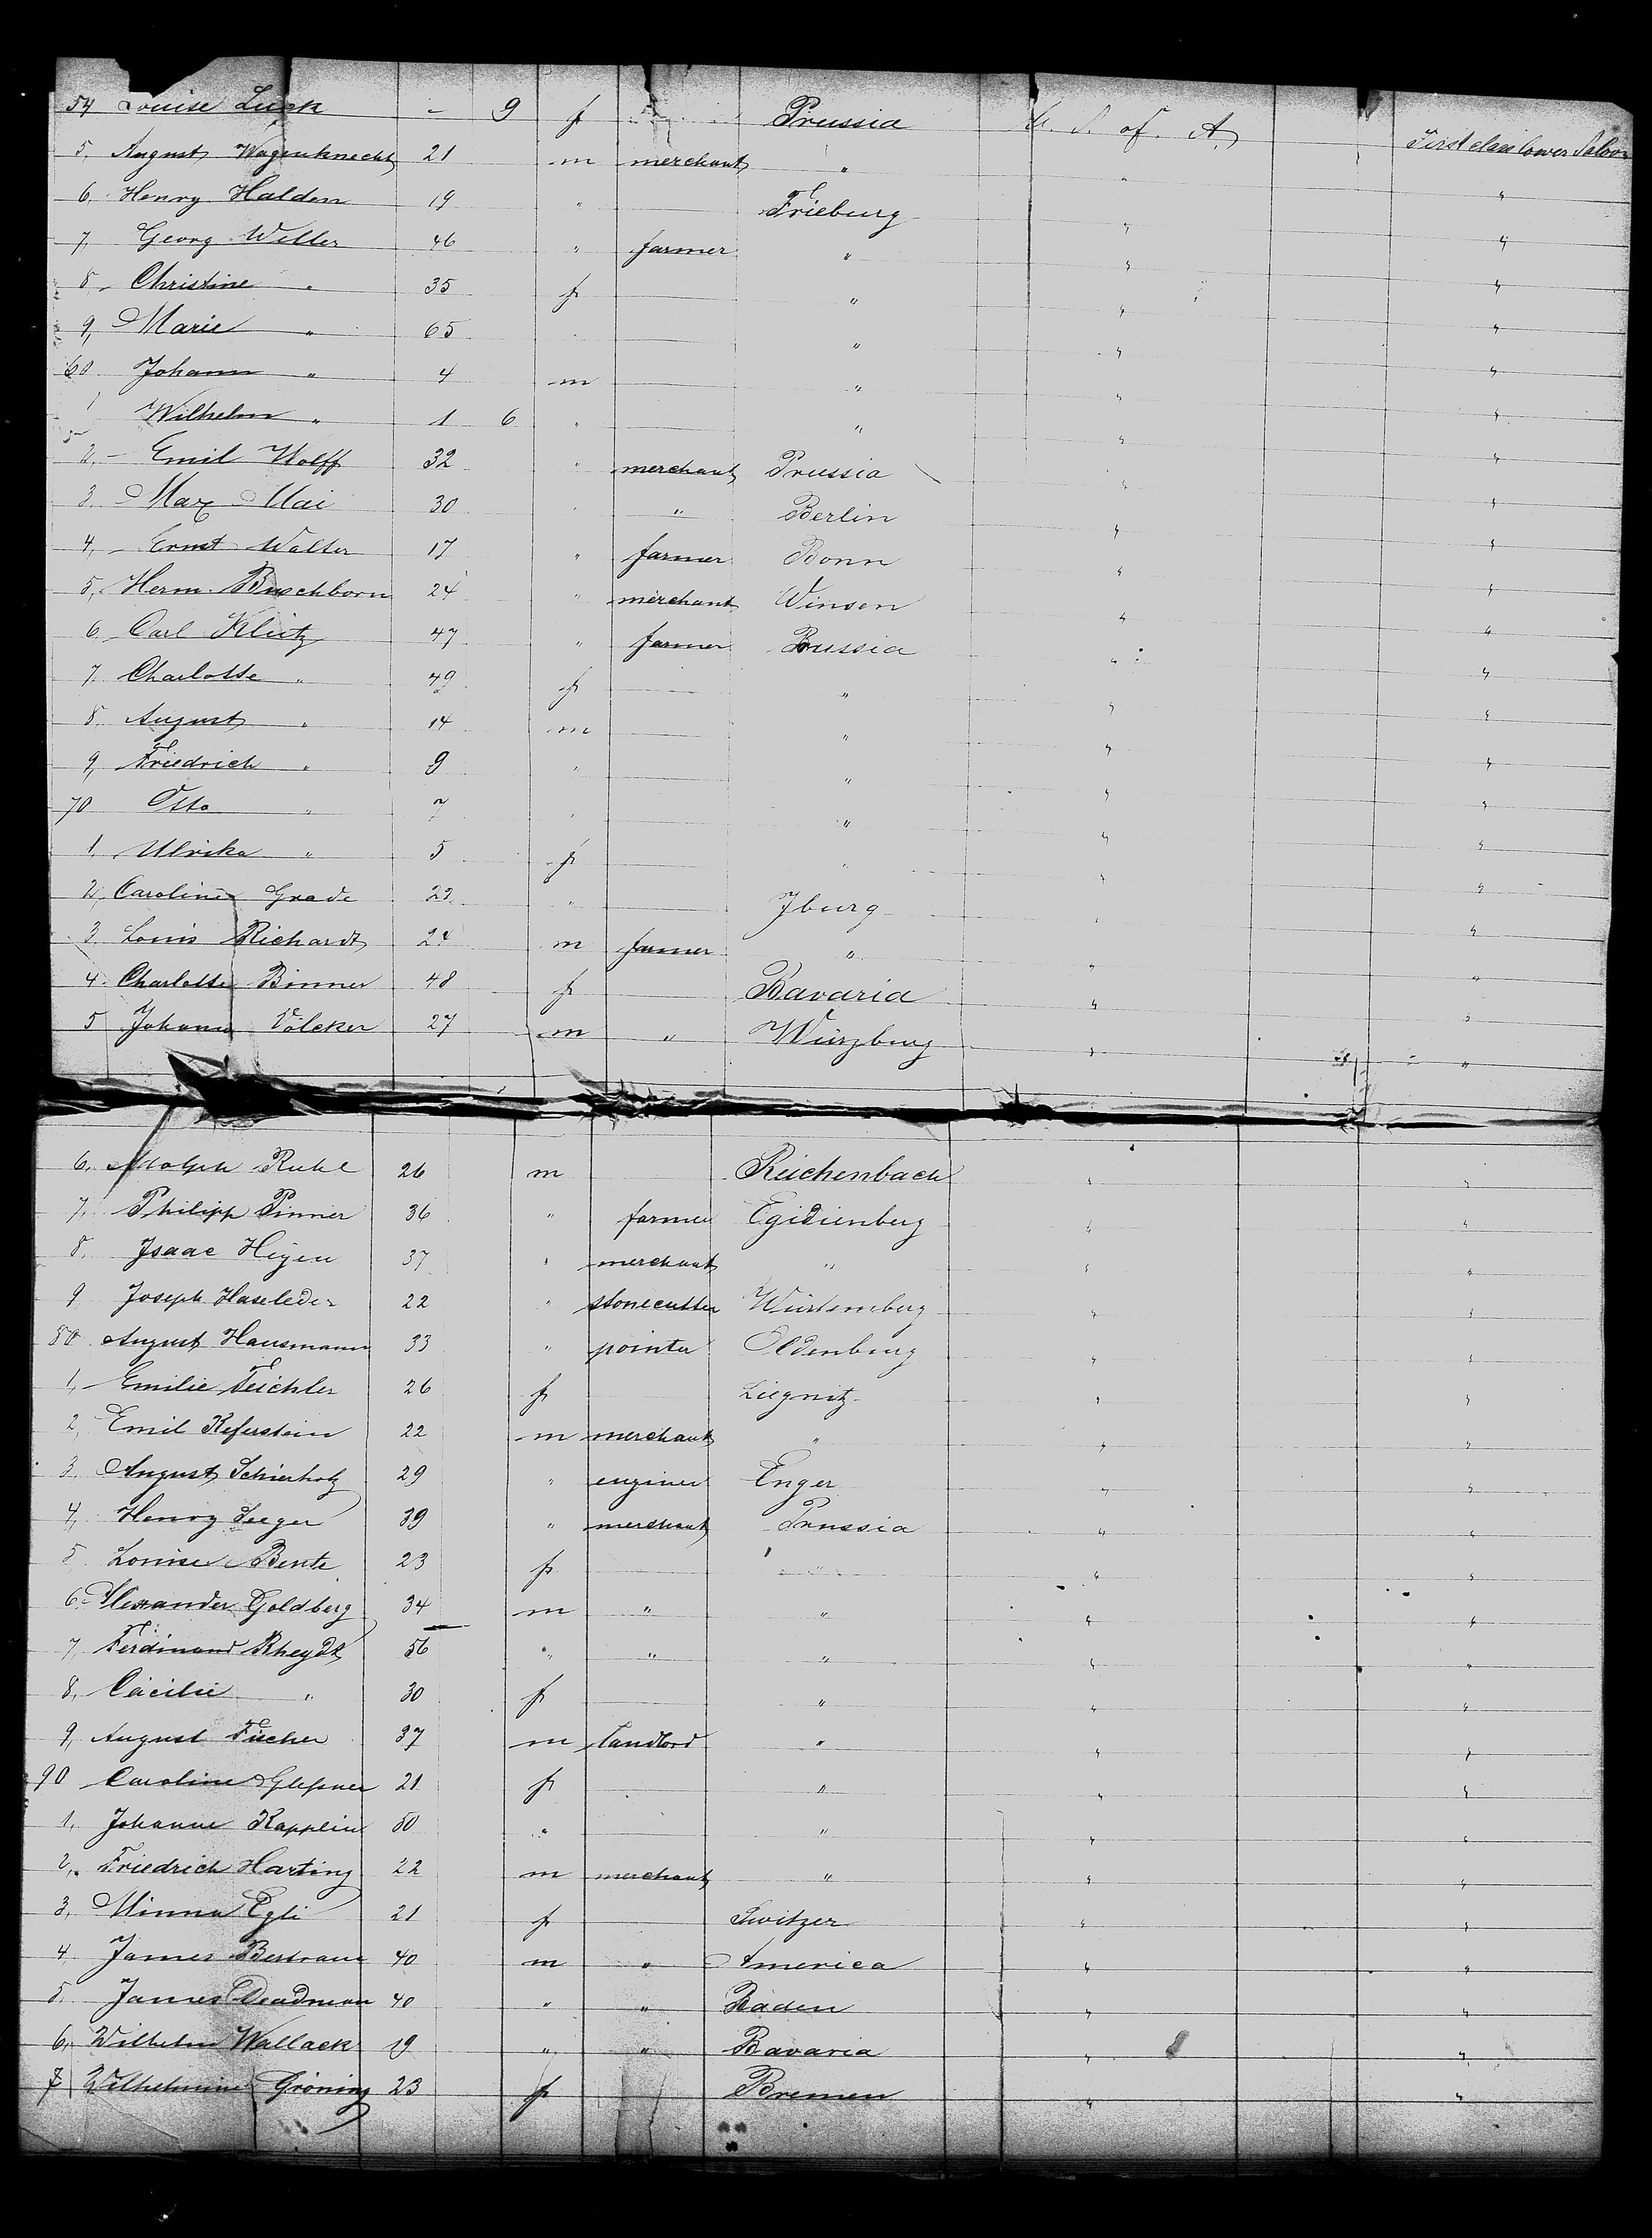 54 Louise Luck - 9 f Prussia U. S. of A. First class lower Saloon
5, August Wagenknecht 21 m merchant " " "
6, Henry Halden 19 " Frieburg " "
7, Georg Weller 46 " farmer " " "
8, Christine " 35 f " " "
9, Marie " 65 " " "
60 Johann " 4 m " " "
1 Wilhelm " 1 6 " " " "
2, Emil Wolff 32 " merchant Prussia " "
3. Max Mai 30 " " Berlin " "
4, Ernst Walter 17 " farmer Bonn " "
5, Herm. Buschborn 24 " merchant Winsen " "
6, Carl Klutz 47 " farmer Prussia " "
7, Charlotte " 49 f " " "
8. August " 14 m " " "
9, Friedrich " 9 " " " "
70 Otto " 7 " " " "
1, Ulrika " 5 f " " "
2, Caroline Grade 23 " Jburg " "
3, Louis Richardt 24 m farmer " " "
4. Charlotte Binner 48 f Bavaria " "
5 Johann Völcker 27 m " Würzburg " "
6, Adolph Ruhl 26 m Reichenbach " "
7, Philipp Pinner 36 " farmer Egidienberg " "
8, Jsaac Heyen 37 " merchant " " "
9 Joseph Haseleder 22 " stonecutter Würtemberg " "
80 August Hausmann 33 " pointer Oldenburg " "
1, Emilie Teichler 26 f Liegnitz " "
2, Emil Keferstein 22 m merchant " " "
3, August Schierholz 29 " enginer Enger " "
4, Henry Seeger 39 " merchant Prussia " "
5 Louise Bente 23 f " " "
6 Alexander Goldberg 34 m " " " "
7, Ferdinand Rheydt 56 " " " " "
8, Cäcilie " 30 f " " "
9, August Fücher 37 m landlord " " "
90 Caroline Glessner 21 f " " "
1, Johanne Kapplein 50 " " " "
2, Friedrich Harting 22 m merchant " " "
3, Minna Egli 21 f Switzer " "
4, James Bertram 40 m " America " "
5, James Deadman 40 " " Baden " "
6, Wilhelm Wallack 19 " " Bavaria " "
7 Wilhelmine Gröning 23 f Bremen " "